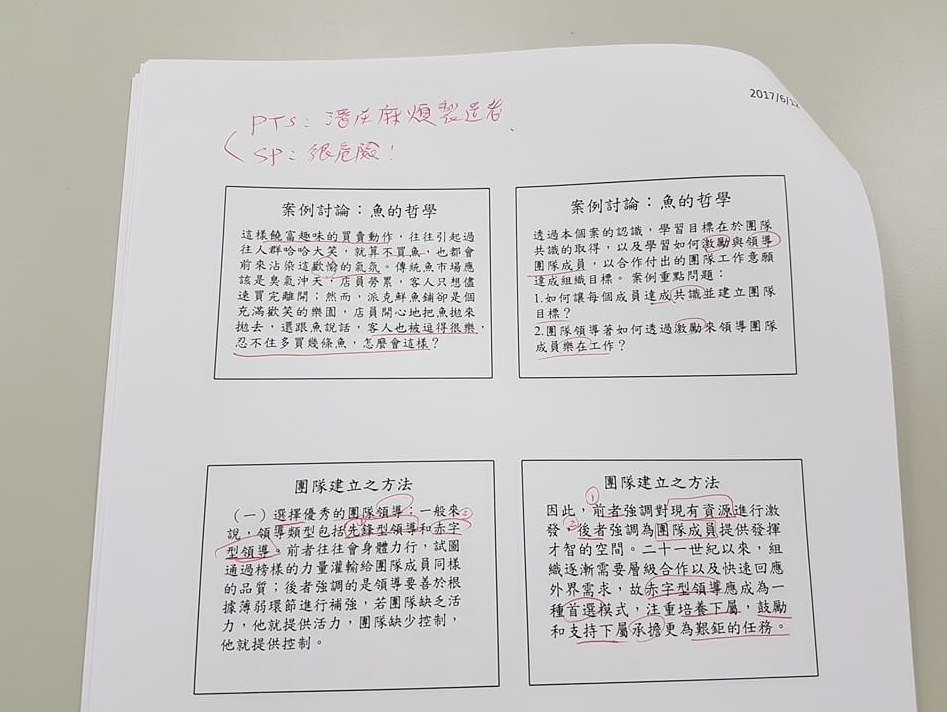 2017/6/12
PTS：潛在麻煩製造者.
SP：很危險！
案例討論：魚的哲學
這樣饒富趣味的買賣動作，往往引起過
往人群哈哈大笑，就算不買魚，也都會
前來沾染這歡愉的氣氛。傳統魚市場應
該是臭氣沖天，店員勞累，客人只想儘
速買完離開；然而，派克鮮魚鋪卻是個
充滿歡笑的樂園，店員開心地把魚拋來
拋去，還跟魚說話，客人也被逗得很樂，
忍不住多買幾條魚，怎麼會這樣？
案例討論：魚的哲學
透過本個案的認識，學習目標在於團隊
共識的取得，以及學習如何激勵與領導
團隊成員，以合作付出的團隊工作意願
達成組織目標。案例重點問題：
1.如何讓每個成員達成共識並建立團隊
目標？
2.團隊領導著如何透過激勵來領導團隊
成員樂在工作？
團隊建立之方法
（一）選擇優秀的團隊領導：一般來
說，領導類型包括先鋒型領導和赤字
型領導。前者往往會身體力行，試圖
通過榜樣的力量灌輸給團隊成員同樣
的品質；後者強調的是領導要善於根
據薄弱環節進行補強，若團隊缺乏活
力，他就提供活力，團隊缺少控制，
他就提供控制。
團隊建立之方法
因此，①前者強調對現有資源進行激
發，②後者強調為團隊成員提供發揮
才智的空間。二十一世紀以來，組
織逐漸需要層級合作以及快速回應
外界需求，故赤字型領導應成為一
種首選模式，注重培養下屬，鼓勵
和支持下屬承擔更為艱鉅的任務。